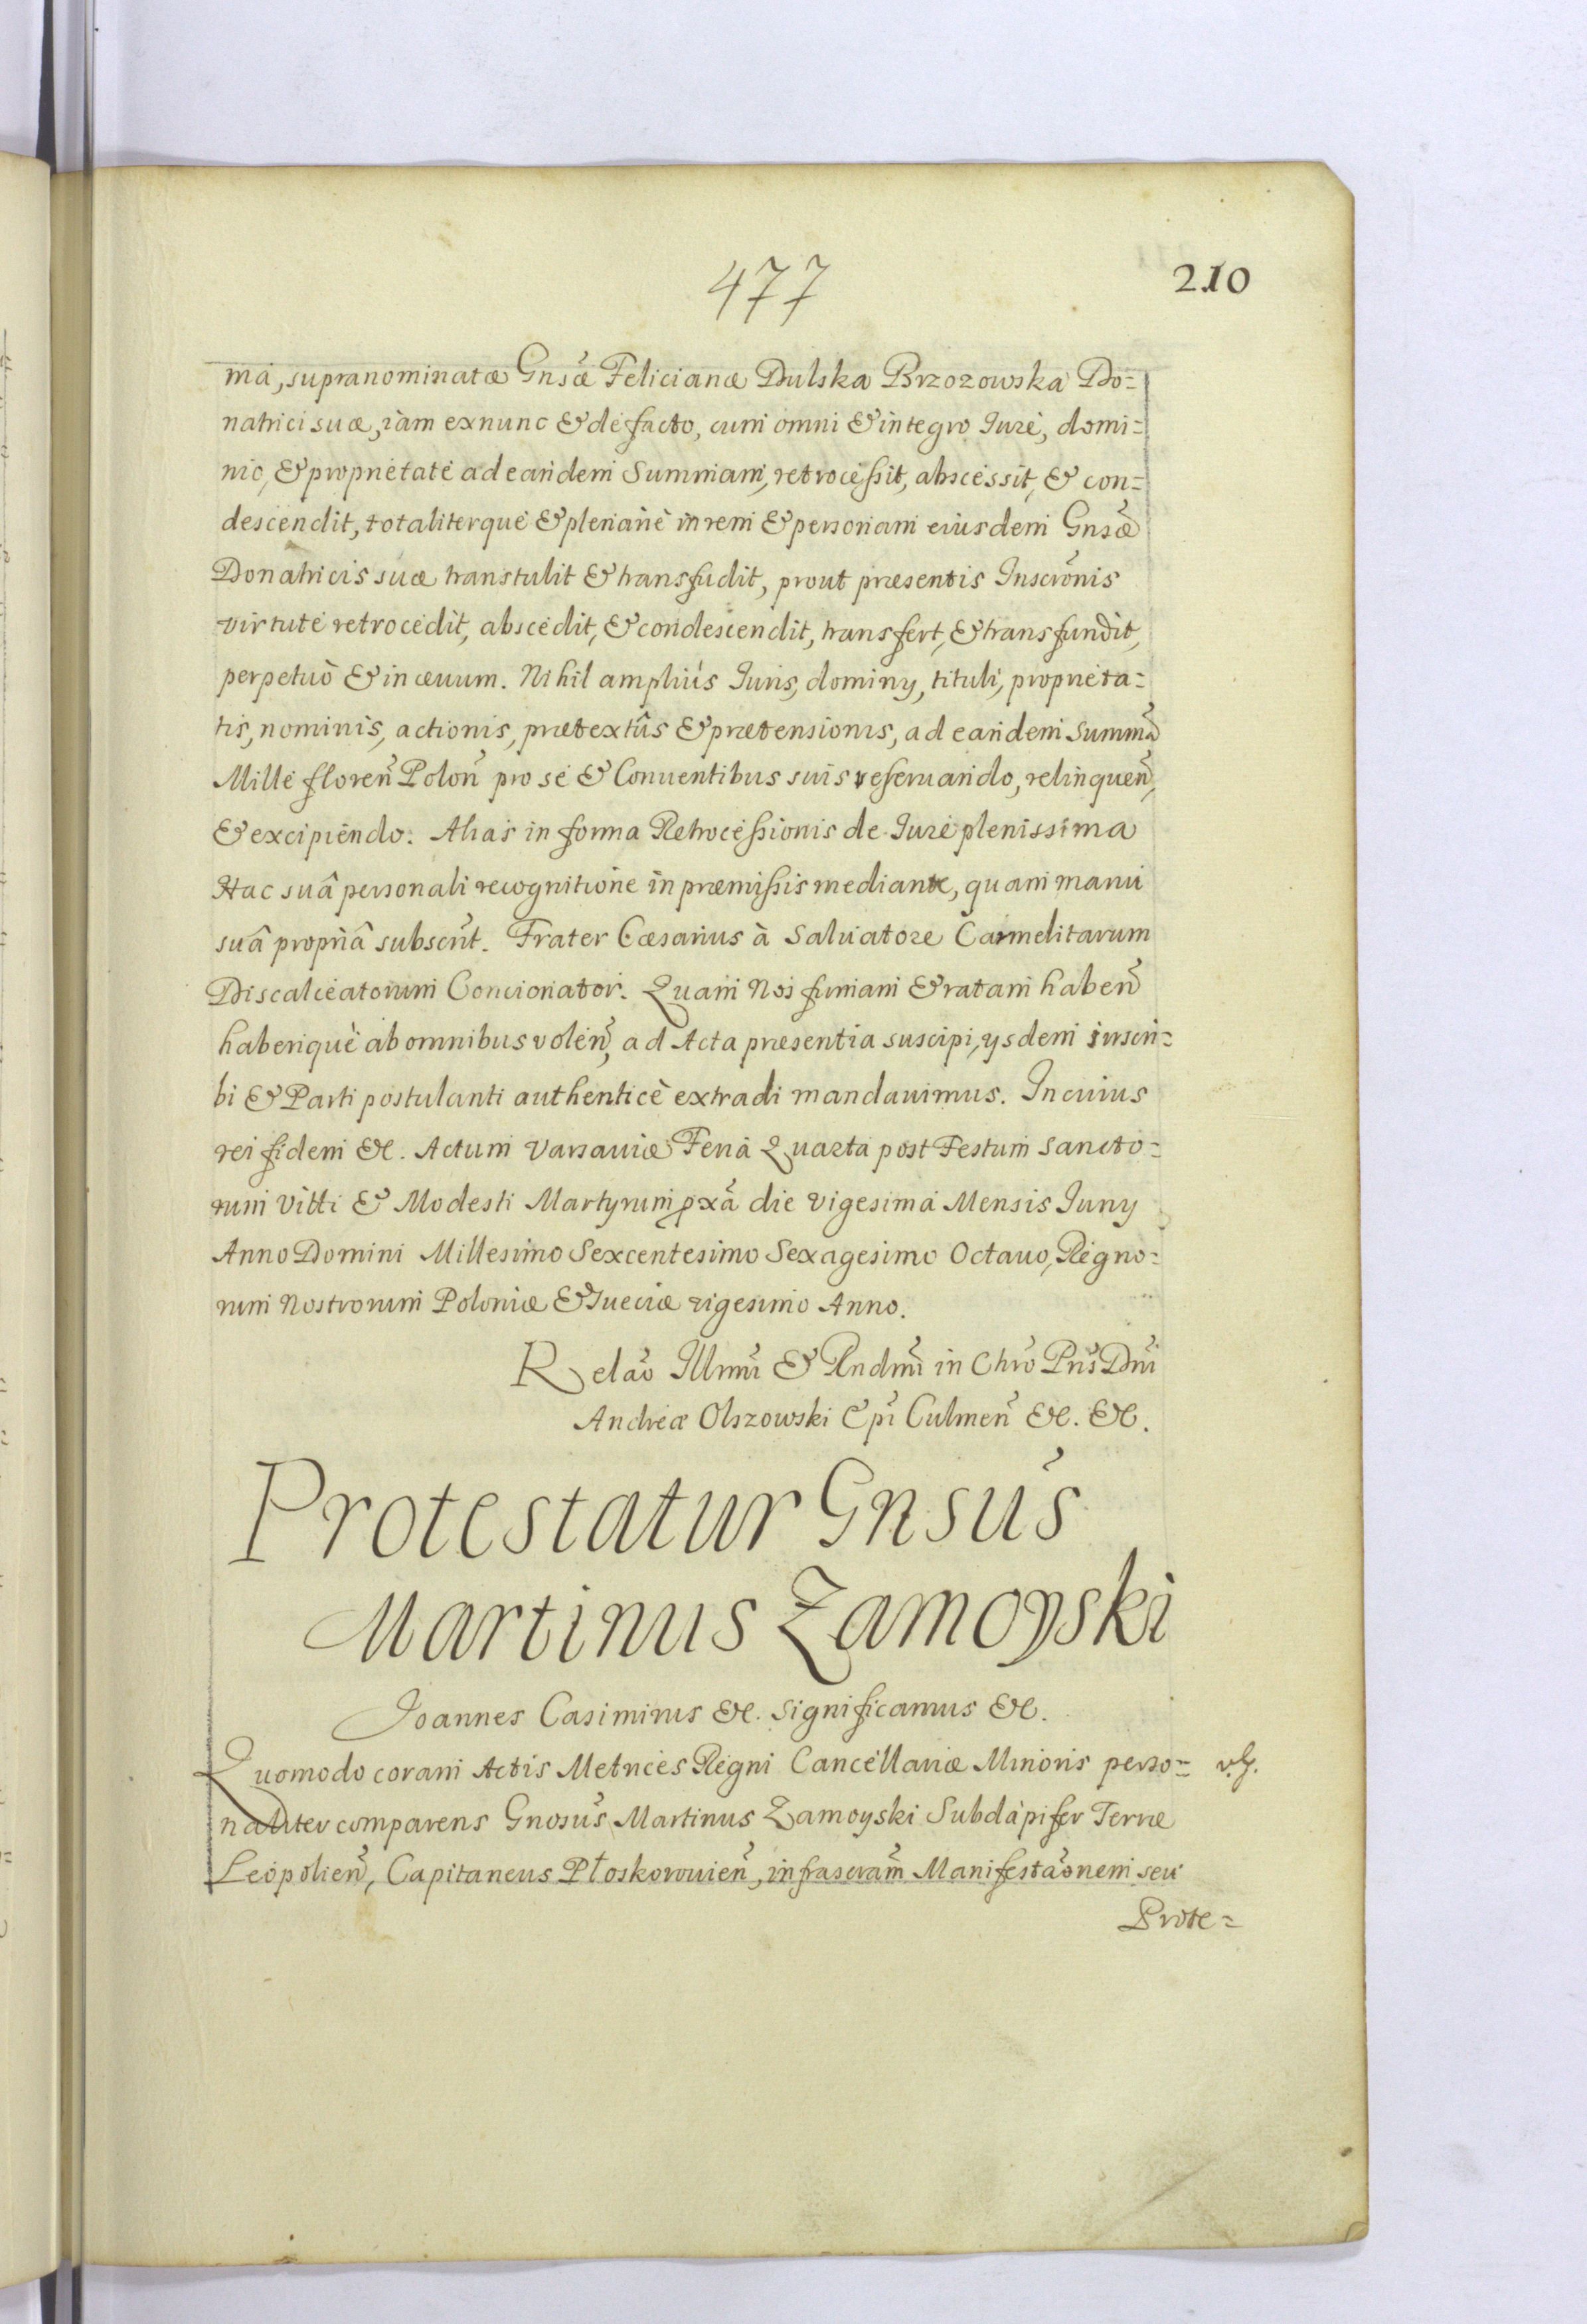 477
210
ma, supranominatæ Gnsæ Felicianæ Dulska Brzozowska Do=
natrici suæ, iàm exnunc & de facto, cum omni & integro Iure, domi=
nio, & proprietate ad eandem Summam, retrocessit, abscessit, & con=
descendit, totaliterque & plenariè in rem & personam eiusdem Gnsæ
Donatricis suæ transtulit & transfudit, prout præsentis Inscrõnis
virtute retrocedit, abscedit, & condescendit, transfert, & transfundit,
perpetuò & in ævum. Nihil ampliùs Iuris, dominy, tituli, proprieta=
tis, nominis, actionis, prætextûs & prætensionis, ad eandem Summã
Mille floreñ Poloñ pro se & Conuentibus suis reseruando, relinqueñ,
& excipiendo. Alias in forma Retrocessionis de Iure plenissima
Hac suâ personali recognitione in præmissis mediante, quam manu
suâ propriâ subscrīt. Frater Cæsarius à Saluatore Carmelitarum
Discalceatorum Concionator. Quam Nos firmam & ratam habeñ
haberique ab omnibus voleñ, ad Acta præsentia suscipi, ysdem inscri=
bi & Parti postulanti authenticè extradi mandauimus. In cuius
rei fidem &c. Actum Varsauiæ Feria Quarta post Festum Sancto=
rum Vitti & Modesti Martyrum pxã die vigesima Mensis Iuny
Anno Domini Millesimo Sexcentesimo Sexagesimo Octauo, Regno=
rum Nostrorum Poloniæ & Sueciæ vigesimo Anno.
Relaõ Illmi & Rndmi in Chro Pris Dni
Andreæ Olszowski Epi Culmeñ &c. &c.
Protestatur Gnsus
Martinus Zamoyski
Joannes Casimirus &c. Significamus &c.
Quomodo coram Actis Metrices Regni Cancellariæ Minoris perso=
naliter comparens Gnosus Martinus Zamoyski Subdapifer Terræ
Leopolieñ, Capitaneus Płoskorouieñ, infrascram̃ Manifestaõnem seu
Prote=